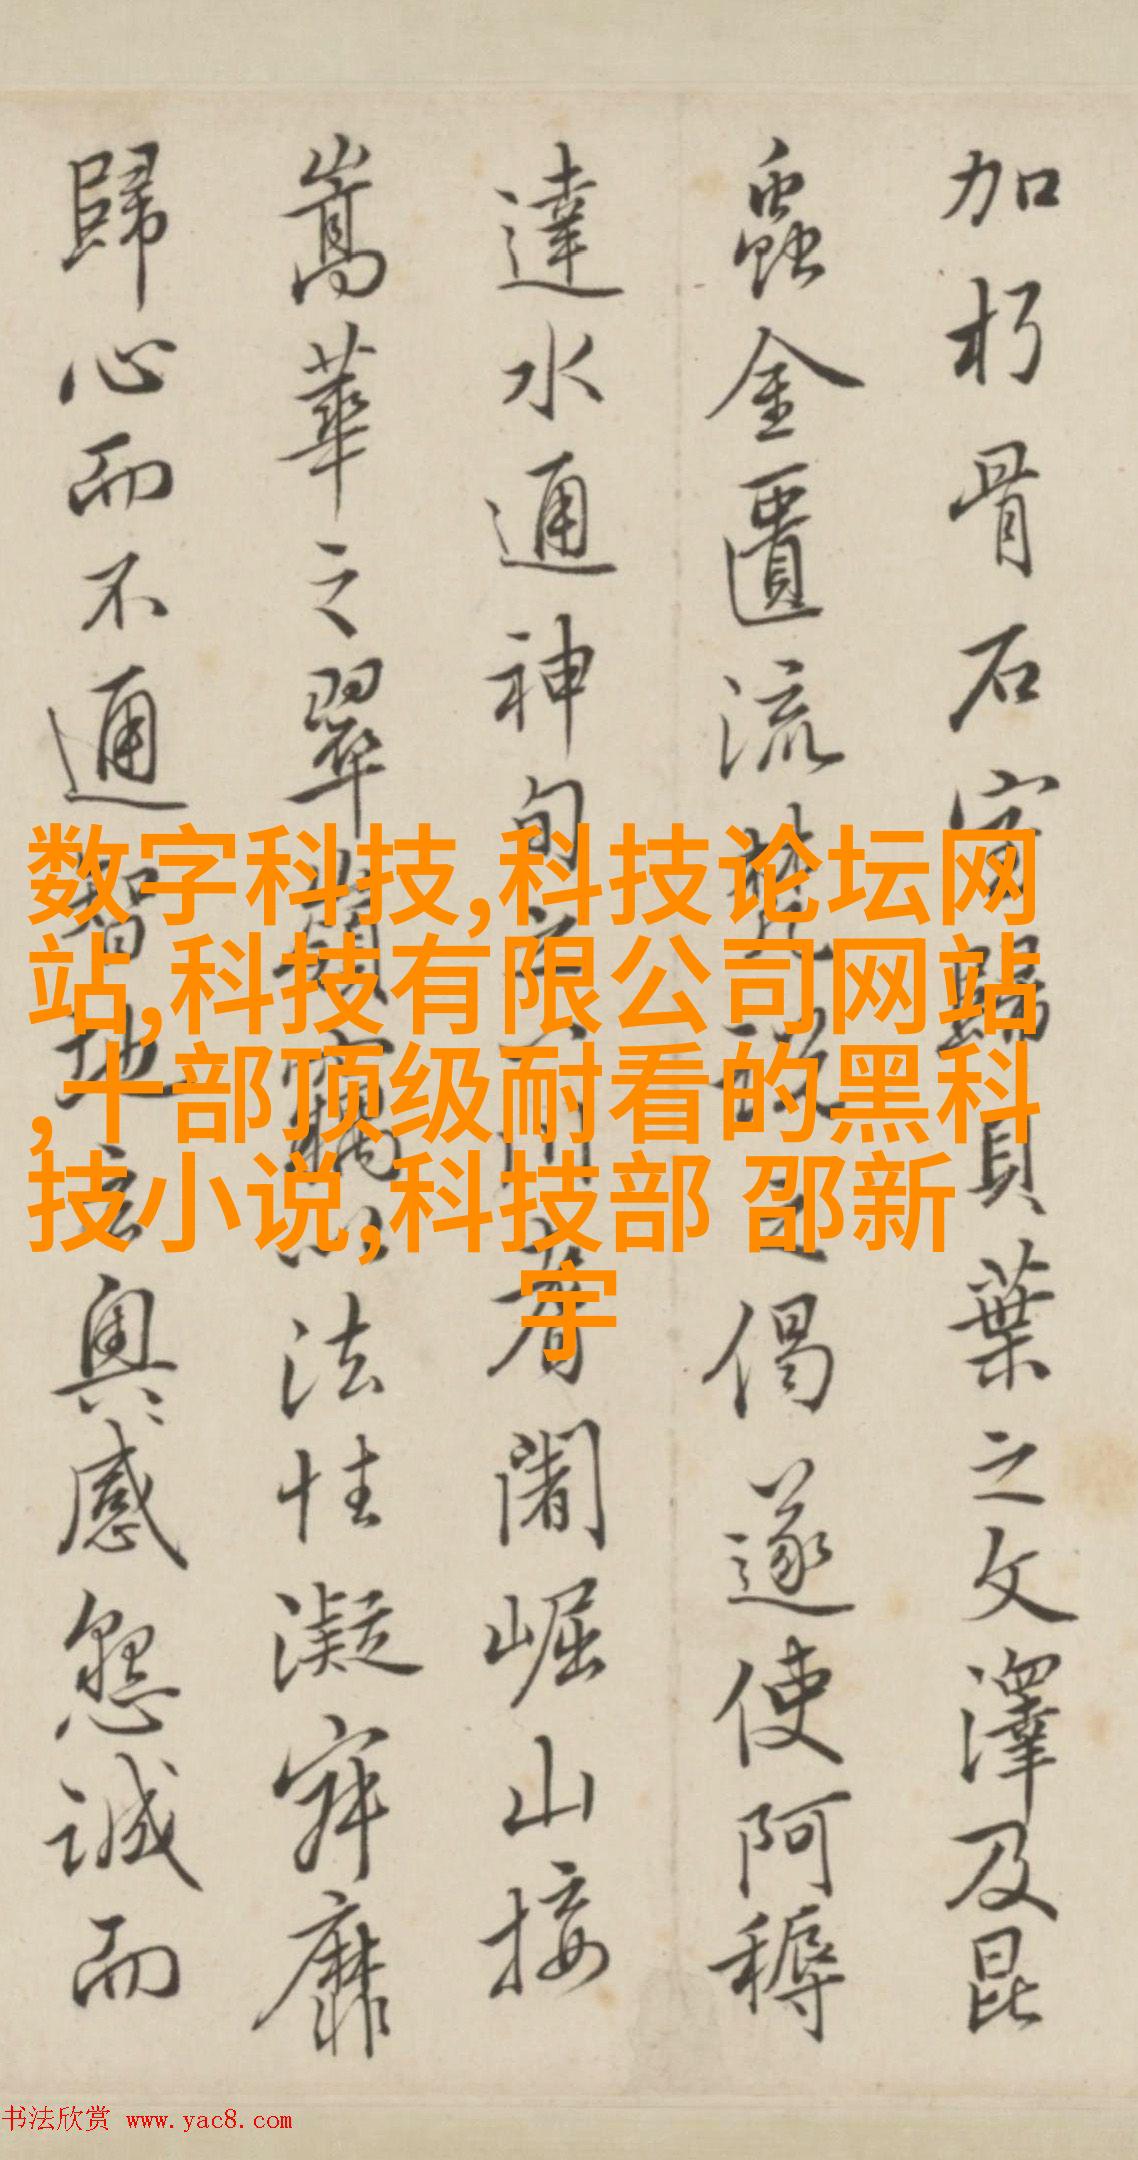 加朽骨石室歸貝葉之文澤及昆
蟲金匱流梵說之偈遂使阿耨
達水通神甸之八川耆闍崛山接
嵩華之翠嶺竊以法性凝寂靡
歸心而不通智地玄奧感懇誠而
数字科技,科技论坛网
站,科技有限公司网站
,十部顶级耐看的黑科
技小说,科技部 邵新
宇
书法欣赏 www.yac8.com